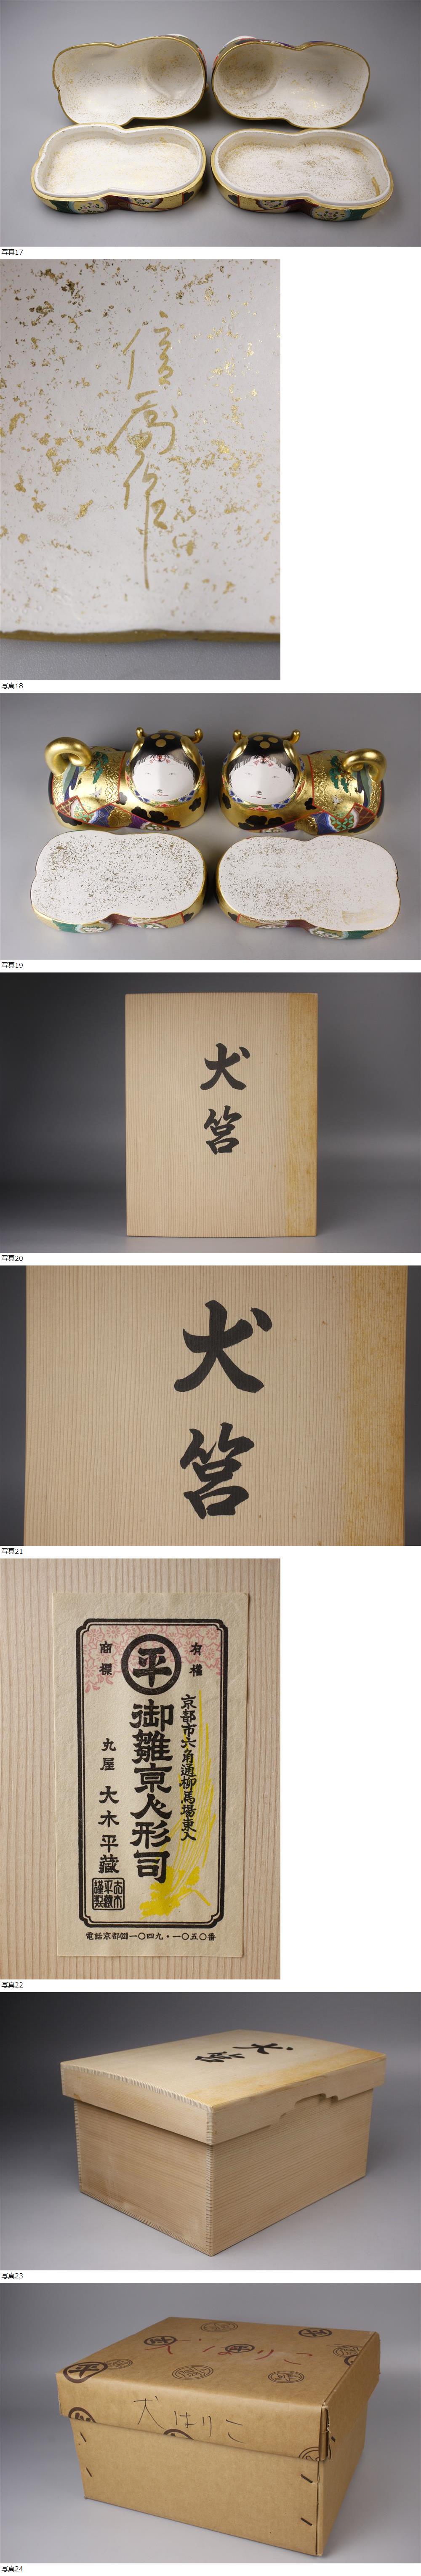 写真17
信斎作
写真18
写真19
犬
筥
写真20
犬
筥
写真21
有權
平
商標
京都市六角通柳馬場東入
御雛京人形司
丸屋 大木平藏
電話京都㉒一〇四九・一〇五〇番
写真22
犬筥
写真23
犬はりこ
平
犬はりこ
写真24